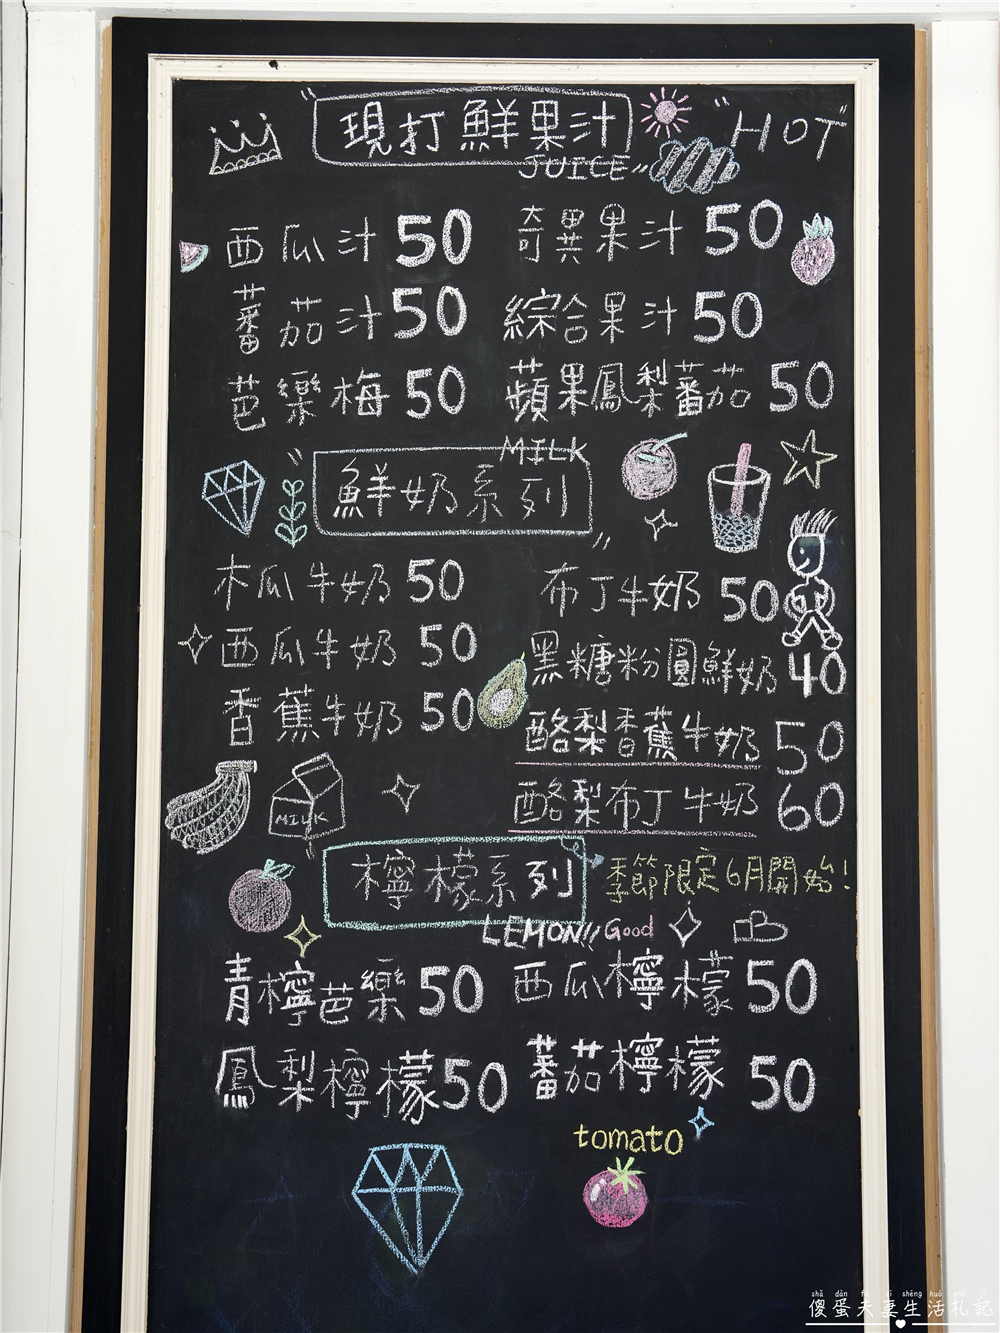 現打鮮果汁
JUICE
"HOT"
西瓜汁 50
奇異果汁 50
蕃茄汁 50
綜合果汁 50
芭樂梅 50
蘋果鳳梨蕃茄 50
MILK
鮮奶系列
木瓜牛奶 50
布丁牛奶 50
西瓜牛奶 50
黑糖粉圓鮮奶 40
香蕉牛奶 50
酪梨香蕉牛奶 50
酪梨布丁牛奶 60
MILK
檸檬系列
季節限定6月開始!
LEMON!! Good
青檸芭樂 50
西瓜檸檬 50
鳳梨檸檬 50
蕃茄檸檬 50
tomato
傻蛋夫妻生活札記